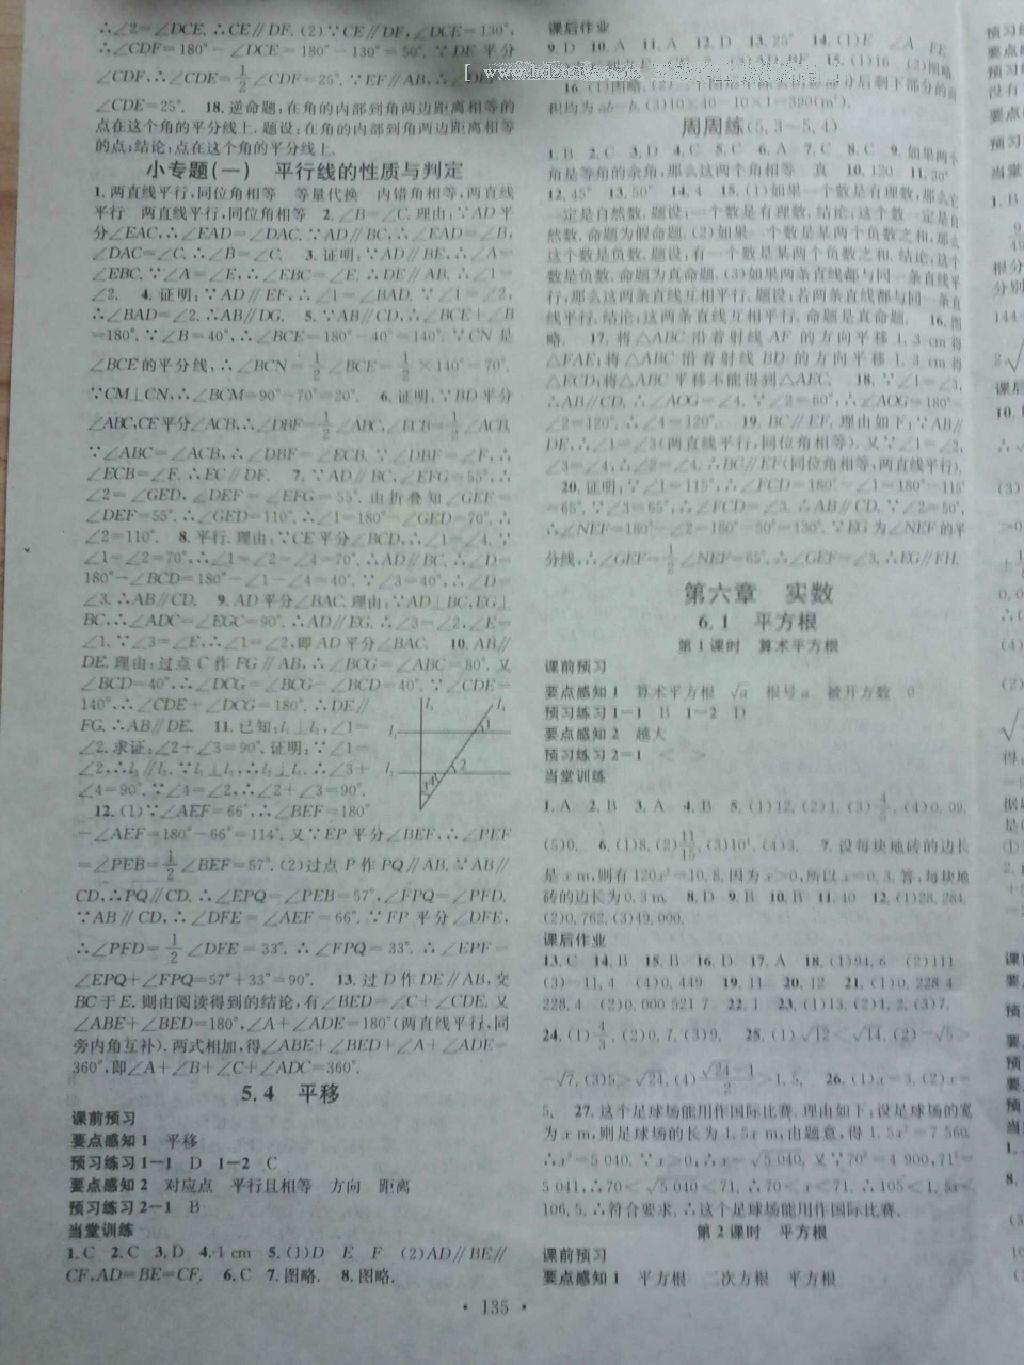 ∴∠2=∠DCE.∴CE∥DF. (2)∵CE∥DF,∠DCE=130°,
∴∠CDF=180°-∠DCE=180°-130°=50°.∵DE平分
∠CDF,∴∠CDE=1/2∠CDF=25°.∵EF∥AB,
∠CDE=25°. 18.逆命题:在角的内部到角两边距离相等的
点在这个角的平分线上.题设:在角的内部到角两边距离相等
的点;结论:点在这个角的平分线上.
小专题(一) 平行线的性质与判定
1.两直线平行,同位角相等 等量代换 内错角相等,两直线
平行 两直线平行,同位角相等 2.∠B=∠C.理由:∵AD平
分∠EAC,∴∠EAD=∠DAC.∵AD∥BC,∴∠EAD=∠B,
∠DAC=∠C.∴∠B=∠C. 3.证明:∵AD∥BE,∴∠A=
∠EBC.∵∠A=∠E,∴∠EBC=∠E.∴DE∥AB.∴∠1=
∠2. 4.证明:∵AD∥EF,∴∠1=∠BAD.∵∠1=∠2,
∴∠BAD=∠2.∴AB∥DG. 5.∵AB∥CD,∴∠BCE+∠B
=180°.∵∠B=40°,∴∠BCE=180°-40°=140°.∵CN是
∠BCE的平分线,∴∠BCN=1/2∠BCE=1/2×140°=70°.
∵CM⊥CN,∴∠BCM=90°-70°=20°. 6.证明:∵BD平分
∠ABC,CE平分∠ACB,∴∠DBF=1/2∠ABC,∠ECB=1/2∠ACB.
∵∠ABC=∠ACB,∴∠DBF=∠ECB.∵∠DBF=∠F,∴
∠ECB=∠F.∴EC∥DF. 7.∵AD∥BC,∠EFG=55°,∴
∠2=∠GED,∠DEF=∠EFG=55°.由折叠知∠GEF=
∠DEF=55°.∴∠GED=110°.∴∠1=180°-∠GED=70°.∴
∠2=110°. 8.平行.理由:∵CE平分∠BCD,∴∠1=∠4.∵
∠1=∠2=70°,∴∠1=∠2=∠4=70°.∴AD∥BC.∴∠D=
180°-∠BCD=180°-∠1-∠4=40°.∵∠3=40°,∴∠D=
∠3.∴AB∥CD. 9.AD平分∠BAC.理由:∵AD⊥BC,EG⊥
BC,∴∠ADC=∠EGC=90°.∴AD∥EG.∴∠3=∠2,∠E=
∠1.∵∠3=∠E,∴∠1=∠2,即AD平分∠BAC. 10.AB∥
DE.理由:过点C作FG∥AB,∴∠BCG=∠ABC=80°.又
∠BCD=40°,∴∠DCG=∠BCG-∠BCD=40°.∵∠CDE=
140°,∴∠CDE+∠DCG=180°.∴DE∥
FG.∴AB∥DE. 11.已知:l₁⊥l₃,∠1=
∠2.求证:∠2+∠3=90°.证明:∵∠1=
∠2,∴l₁∥l₂.∵l₁⊥l₃,∴l₂⊥l₃.∴∠3+
∠4=90°.∵∠4=∠2,∴∠2+∠3=90°.
12.(1)∵∠AEF=66°,∴∠BEF=180°
-∠AEF=180°-66°=114°.又∵EP平分∠BEF,∴∠PEF
=∠PEB=1/2∠BEF=57°.(2)过点P作PQ∥AB.∵AB∥
CD,∴PQ∥CD.∴∠EPQ=∠PEB=57°,∠FPQ=∠PFD.
∵AB∥CD,∴∠DFE=∠AEF=66°.∵FP平分∠DFE,
∴∠PFD=1/2∠DFE=33°.∴∠FPQ=33°.∴∠EPF=
∠EPQ+∠FPQ=57°+33°=90°. 13.过D作DE∥AB,交
BC于E.则由阅读得到的结论,有∠BED=∠C+∠CDE.又
∠ABE+∠BED=180°,∠A+∠ADE=180°(两直线平行,同
旁内角互补).两式相加,得∠ABE+∠BED+∠A+∠ADE=
360°,即∠A+∠B+∠C+∠ADC=360°.
5.4 平移
课前预习
要点感知1 平移
预习练习1-1 D 1-2 C
要点感知2 对应点 平行且相等 方向 距离
预习练习2-1 B
当堂训练
1.C 2.C 3.D 4.1 cm 5.(1)D E F (2)AD∥BE∥
CF,AD=BE=CF. 6.C 7.图略. 8.图略.
课后作业
9.D 10.A 11.A 12.D 13.25° 14.(1)E ∠A FE
15.(1)16 (2)图略.
16.(1)图略.
积均为ab-b.(3)10×40-10×1=390(m²).
周周练(5.3~5.4)
1.B 2.C 3.D 4.C 5.C 6.A 7.C 8.C 9.如果两个
角是等角的余角,那么这两个角相等 真 10.120 11.30°
12.45° 13.50° 14.4 15.(1)如果一个数是有理数,那么它
一定是自然数.题设:一个数是有理数,结论:这个数一定是自
然数.命题为假命题.(2)如果一个数是某两个负数之和,那么
这个数是负数.题设:有一个数是某两个负数之和.结论:这个
数是负数.命题为真命题.(3)如果两条直线都与同一条直线平
行,那么这两条直线互相平行.题设:若两条直线都与同一条直
线平行.结论:这两条直线互相平行.命题是真命题. 16.图
略. 17.将△ABC沿着射线AF的方向平移1.3 cm得
△FAE;将△ABC沿着射线BD的方向平移1.3 cm得
△ECD;将△ABC平移不能得到△AEC. 18.∵∠1=∠3,
∴AB∥CD.∴∠AOG=∠4.∵∠2=60°,∴∠AOG=180°-
∠2=120°.∴∠4=120°. 19.BC∥EF.理由如下:∵AB∥
DE,∴∠1=∠3(两直线平行,同位角相等).又∵∠1=∠2,
∠3=∠4,∴∠2=∠4.∴BC∥EF(同位角相等,两直线平行).
20.证明:∵∠1=115°,∴∠FCD=180°-∠1=180°-115°
=65°.∵∠3=65°,∴∠FCD=∠3.∴AB∥CD.∵∠2=50°,
∴∠NEF=180°-∠2=180°-50°=130°.∵EG为∠NEF的平
分线,∴∠GEF=1/2∠NEF=65°.∴∠GEF=∠3.∴EG∥FH.
第六章 实数
6.1 平方根
第1课时 算术平方根
课前预习
要点感知1 算术平方根 √a 根号a 被开方数 0
预习练习1-1 B 1-2 D
要点感知2 越大
预习练习2-1 < >
当堂训练
1.A 2.B 3.A 4.B 5.(1)12.(2)1.(3)4/5.(4)0.09.
(5)0. 6.(1)8.(2)11/15.(3)10⁴.(4)3. 7.设每块地砖的边长
是x m,则有120x²=10.8.因为x>0,所以x=0.3.答:每块地
砖的边长为0.3 m. 8.D 9.B 10.B 11.40 12.(1)28.284.
(2)0.762.(3)49.000.
课后作业
13.C 14.B 15.B 16.D 17.A 18.(1)94.6 (2)111
(3)-11.4 (4)0.449 19.11 20.12 21.(1)0.228 4
228.4 (2)0.000 521 7 22.1 23.(1)13.(2)1.2.(3)7.
24.(1)4/3.(2)0.7.(3)9. 25.(1)√12<√14.(2)-√5>
-√7.(3)5>√24.(4)(√24-1)/2>1.5. 26.(1)x=3.(2)x=
5. 27.这个足球场能用作国际比赛.理由如下:设足球场的宽
为x m,则足球场的长为1.5x m,由题意,得1.5x²=7 560.
∴x²=5 040.∵x>0,∴x=√5 040.又∵70²=4 900,71²=
5 041,∴70<√5 040<71.∴70<x<71.∴105<1.5x<
106.5.∴符合要求.∴这个足球场能用作国际比赛.
第2课时 平方根
课前预习
要点感知1 平方根 二次方根 平方根
· 135 ·